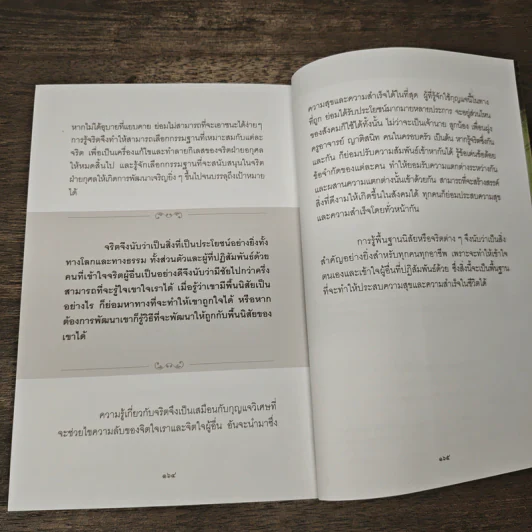 หากไม่ได้อุบายที่แยบคาย ย่อมไม่สามารถที่จะเอาชนะได้ง่ายๆ
การรู้จริตจึงทำให้สามารถเลือกกรรมฐานที่เหมาะสมกับแต่ละ
จริต เพื่อเป็นเครื่องแก้ไขและทำลายกิเลสของจริตฝ่ายอกุศล
ให้หมดสิ้นไป และรู้จักเลือกกรรมฐานที่จะสนับสนุนในจริต
ฝ่ายกุศลให้เกิดการพัฒนาเจริญยิ่ง ๆ ขึ้นไปจนบรรลุถึงเป้าหมาย
ได้
จริตจึงนับว่าเป็นสิ่งที่เป็นประโยชน์อย่างยิ่งทั้ง
ทางโลกและทางธรรม ทั้งส่วนตัวและผู้ที่ปฏิสัมพันธ์ด้วย
คนที่เข้าใจจริตผู้อื่นเป็นอย่างดีจึงนับว่ามีชัยไปกว่าครึ่ง
สามารถที่จะรู้ใจเขาใจเราได้ เมื่อรู้ว่าเขามีพื้นนิสัยเป็น
อย่างไร ก็ย่อมหาทางที่จะทำให้เขาถูกใจได้ หรือหาก
ต้องการพัฒนาเขาก็รู้วิธีที่จะพัฒนาให้ถูกกับพื้นนิสัยของ
เขาได้
ความรู้เกี่ยวกับจริตจึงเป็นเสมือนกับกุญแจวิเศษที่
จะช่วยไขความลับของจิตใจเราและจิตใจผู้อื่น อันจะนำมาซึ่ง
๑๖๔
ความสุขและความสำเร็จได้ในที่สุด ผู้ที่รู้จักใช้กุญแจนี้ในทาง
ที่ถูก ย่อมได้รับประโยชน์มากมายหลายประการ จะอยู่ส่วนไหน
ของสังคมก็ใช้ได้ทั้งนั้น ไม่ว่าจะเป็นเจ้านาย ลูกน้อง เพื่อนฝูง
ครูอาจารย์ ญาติสนิท คนในครอบครัว เป็นต้น หากรู้จริตซึ่งกัน
และกัน ก็ย่อมปรับความสัมพันธ์เข้าหากันได้ รู้ข้อเด่นข้อด้อย
ข้อจำกัดของแต่ละคน ทำให้ยอมรับความแตกต่างระหว่างกัน
และผสานความแตกต่างนั้นเข้าด้วยกัน สามารถที่จะสร้างสรรค์
สิ่งที่ดีงามให้เกิดขึ้นในสังคมได้ ทุกคนก็ย่อมประสบความสุข
และความสำเร็จโดยทั่วหน้ากัน
การรู้พื้นฐานนิสัยหรือจริตต่าง ๆ จึงนับว่าเป็นสิ่ง
สำคัญอย่างยิ่งสำหรับทุกคนทุกอาชีพ เพราะจะทำให้เข้าใจ
ตนเองและเข้าใจผู้อื่นที่ปฏิสัมพันธ์ด้วย ซึ่งสิ่งนี้จะเป็นพื้นฐาน
ที่จะทำให้ประสบความสุขและความสำเร็จในชีวิตได้
๑๖๕